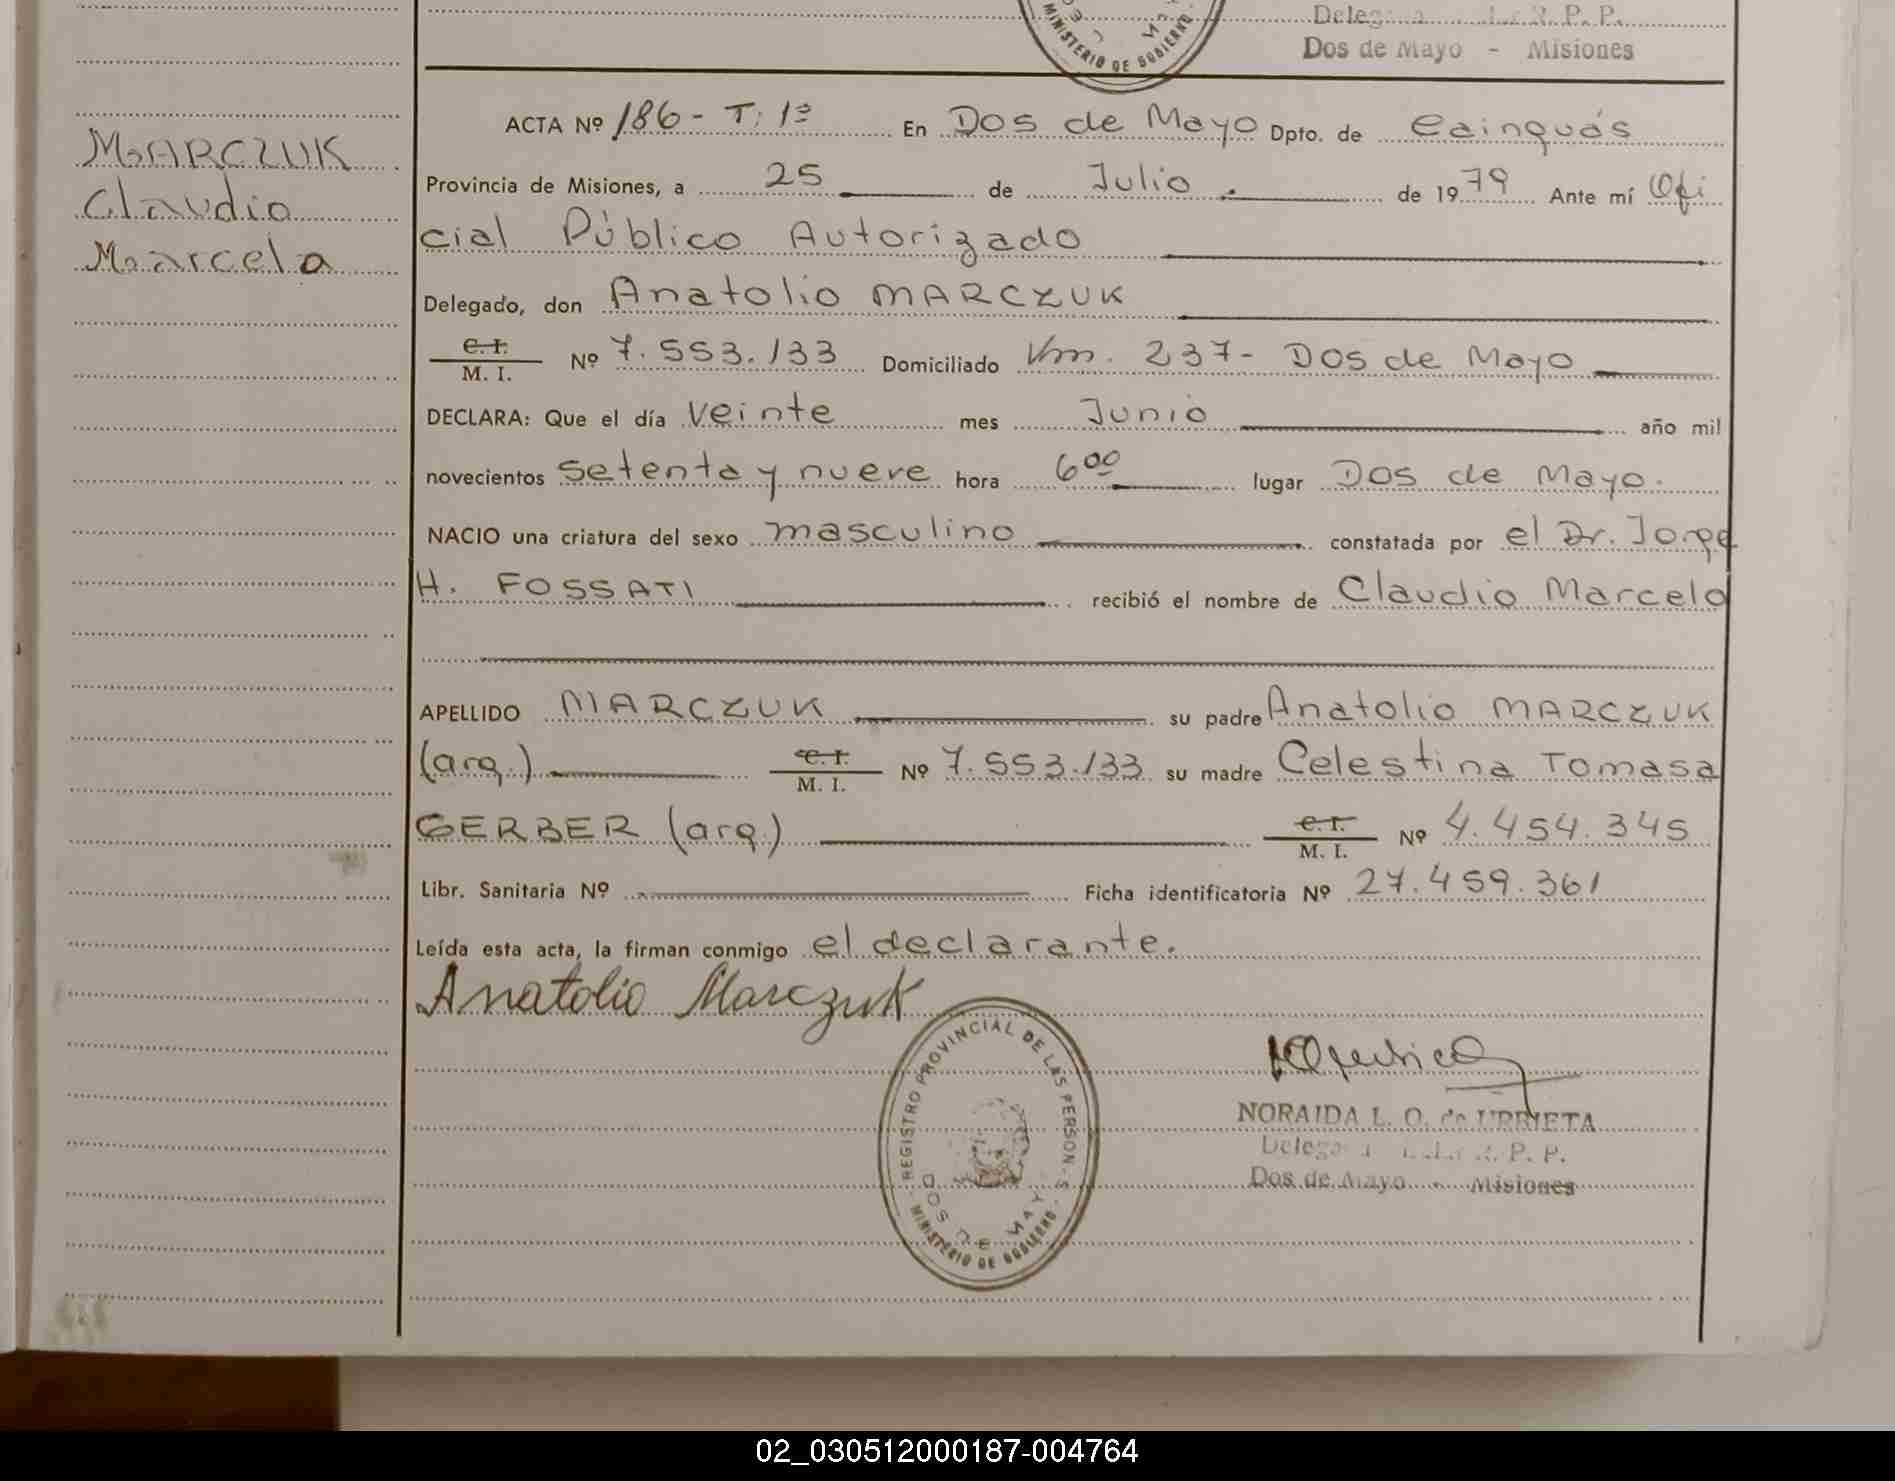 MINISTERIO DE GOBIERNO
R. P. P.
Dos de Mayo - Misiones
MARCZUK
Claudio
Marcela
ACTA Nº 186 - T: 1ª En Dos de Mayo Dpto. de Cainguás
Provincia de Misiones, a 25 de Julio de 1979 Ante mí Ofi
cial Público Autorizado
Delegado, don Anatolio MARCZUK
C. I. M. I. Nº 7.553.133 Domiciliado Km. 237 - Dos de Mayo
DECLARA: Que el día veinte mes Junio año mil
novecientos setenta y nueve hora 6 00 lugar Dos de Mayo.
NACIO una criatura del sexo masculino constatada por el Dr. Jorge
H. FOSSATI recibió el nombre de Claudio Marcelo
APELLIDO MARCZUK su padre Anatolio MARCZUK
(arg.) C. I. M. I. Nº 7.553.133 su madre Celestina Tomasa
GERBER (arg.) C. I. M. I. Nº 4.454.345
Libr. Sanitaria Nº Ficha identificatoria Nº 27.459.361
Leída esta acta, la firman conmigo el declarante.
Anatolio Marczuk
REGISTRO PROVINCIAL DE LAS PERSONAS
DOS DE MAYO
MINISTERIO DE GOBIERNO
NORAIDA L. O. de URRIETA
R. P. P.
Dos de Mayo - Misiones
02_030512000187-004764